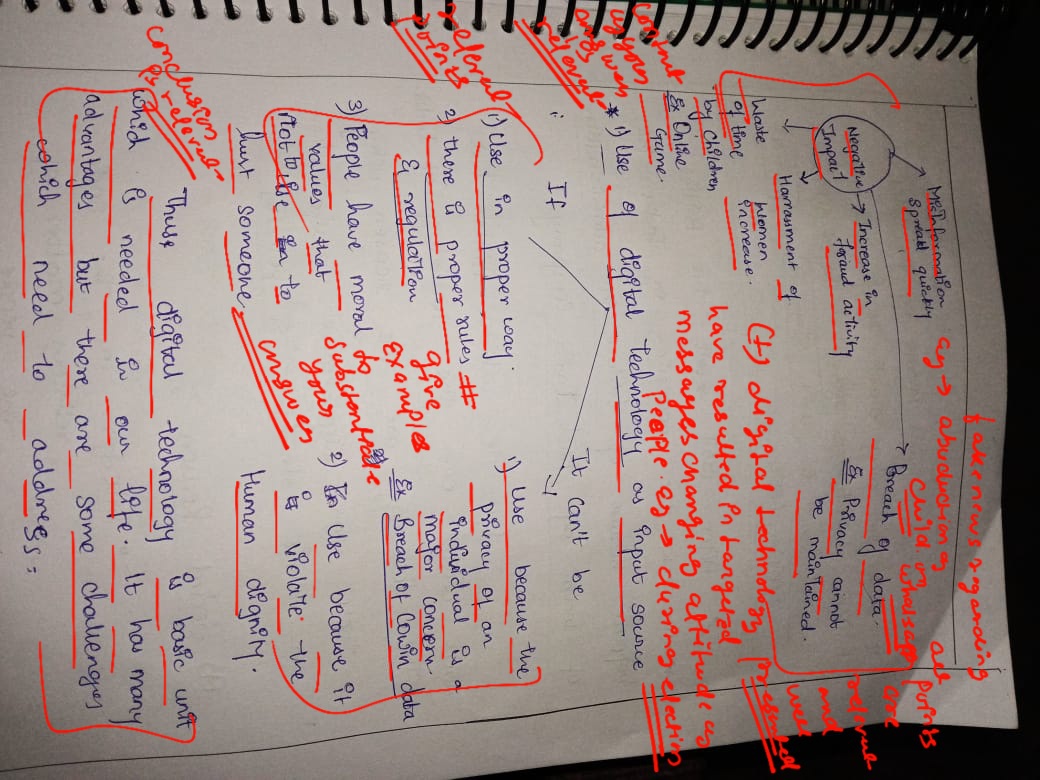 fake news regarding
eg → abduction of
child on whatsapp
Misinformation
spread quickly
Negative
Impact
→ Increase in
fraud activity
Breach of data.
Ex Privacy cannot
be maintained
Waste
of time
by children
Ex Online
Game.
Harrasment of
Women
increase.
points
are
relevant
and
well
presented
(+) digital technology
have resulted in targeted
messages changing attitude of
People. eg → during election
content
of your
answer
relevant
* 1) Use of digital technology as input source
If
It can't be
1) Use in proper way.
2) there is proper rules
& regulation
3) People have moral
values that
Not to use to
hurt someone
relevant
points
# give
Examples
to
substantiate
your
answer
1) Use because the
privacy of an
individual is a
major concern.
Ex Breach of Cowin data
2) Use because it
is violate the
Human dignity.
conclusion
is relevant
Thus digital technology is basic unit
which is needed in our life. It has many
advantages but there are some challenges
which need to address.